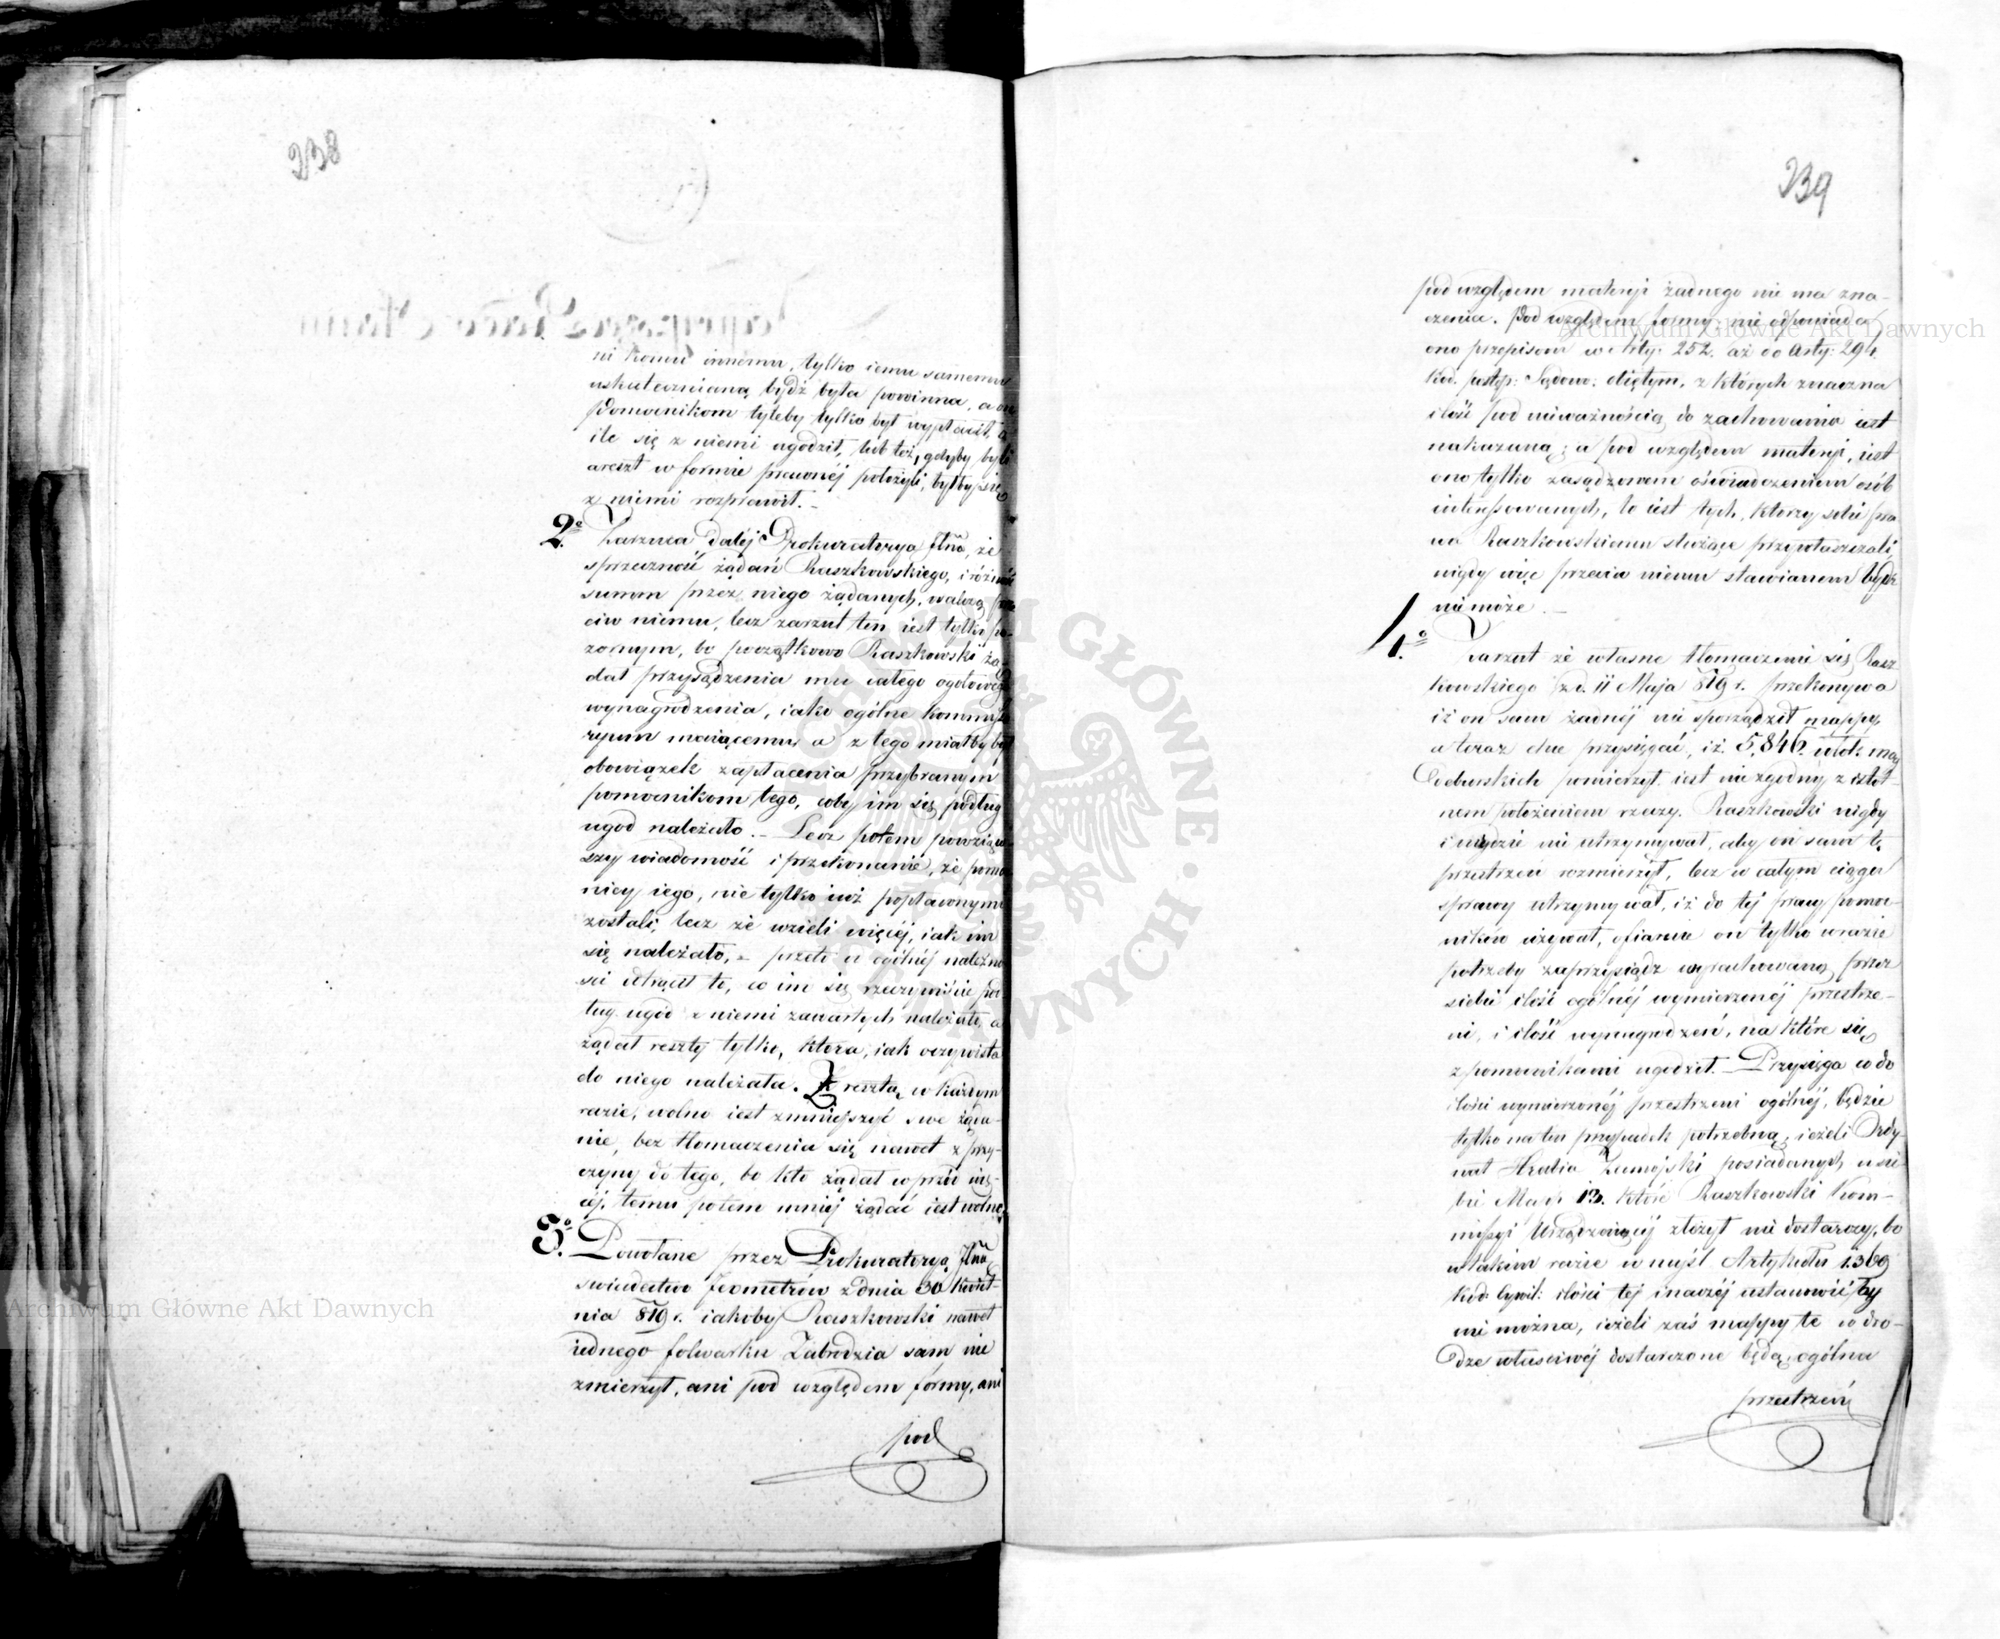 238
ni komu innemu, tylko iemu samemu
uskutecznianą bydź była powinna, a on
Pomocnikom tyleby tylko był wypłacił, o
ile się z niemi ugodził, lub też, gdyby byli
areszt w formie prawnéj położyli, byłby się
z niemi rozprawił. –
2o. Zarzuca daléj Prokuratorya Jlna, że
sprzeczność żądań Raszkowskiego, i różność
summ przez niego żądanych, walczą prze
ciw niemu, lecz zarzut ten iest tylko po-
zornym, bo początkowo Raszkowski żą-
dał przysądzenia mu całego ogółowego
wynagrodzenia, iako ogólne kommisso
ryum maiącemu, a z tego miałby był
obowiązek zapłacenia przybranym
pomocnikom tego, coby im się podług
ugod należało. – Lecz potém powziąw-
szy wiadomość i przekonanie, że pomo
nicy iego, nie tylko iuż popłaconymi
zostali, lecz że wzieli więcéj, iak im
się należało, – przeto od ogólnéj należno
ści odtrącił to, co im się rzeczywiście pod-
ług ugód z niemi zawartych należało, a
żądał reszty tylko, która, iak oczywista
do niego należała. Zresztą, w każdym
razie, wolno iest zmniejszyć swe żąda-
nie, bez tłomaczenia się nawet z przy-
czyny do tego, bo kto żądał wprzód wię-
céj, temu potem mniéj żądać iest wolno.
3o. Powołane przez Prokuratoryą Jlną
świadectwo Jeometrów z dnia 30 Kwiet-
nia 819 r. iakoby Raszkowski nawet
iednego folwarku Zabrodzia sam nie
zmierzył, ani pod względem formy, ani
pod
239
pod względem materyi żadnego nie ma zna-
czenia. Pod względem formy, nie odpowiada
ono przepisom w Arty: 252. aż do Arty: 294
Kod. postęp: Sądowo: obiętym, z których znaczna
ilość pod nieważnością do zachowania iest
nakazaną; a pod względem materyi, iest
ono tylko zasądzowem oświadczeniem osób
interessowanych, to iest tych, którzy sobie pra
wa Raszkowskiemu służące przywłaszczali,
nigdy więc przeciw niemu stawianem bydź
nie może. –
4o. Zarzut że własne tłomaczenie się Rasz
kowskiego z d. 11 Maja 819 r. przekonywa
iż on sam żadnéj nie sporządził mappy,
a teraz chce przysięgać, iż 5,846. włók mag
deburskich pomierzył iest nie zgodny z istot-
nem położeniem rzeczy. Raszkowski nigdy
i nigdzie nie utrzymywał, aby on sam tę
przestrzeń rozmierzył, lecz w całym ciągu
sprawy utrzymywał, iż do téj pracy pomoc-
ników używał, ofiarue on tylko w razie
potrzeby zaprzysiądz wyrachowaną przez
siebie ilość ogólnéj wymierzonéj przestrze-
ni, i ilość wynagrodzeń, na które się
z pomocnikami ugodził. – Przysięga co do
ilości wymierzonéj przestrzeni ogólnéj, będzie
tylko na ten przypadek potrzebną, ieżeli Ordy-
nat Hrabia Zamojski posiadanych u sie-
bie Mapp 13. które Raszkowski Kom-
missyi Urządzaiącéj złożył nie dostarczy, bo
w takim razie w myśl Artykułu 1369
Kod: Cywil: ilości téj inaczéj ustanowić by
nie można, ieżeli zaś mappy te w dro-
dze właściwéj dostarczone będą, ogólna
przestrzeń
Archiwum Główne Akt Dawnych
Archiwum Główne Akt Dawnych